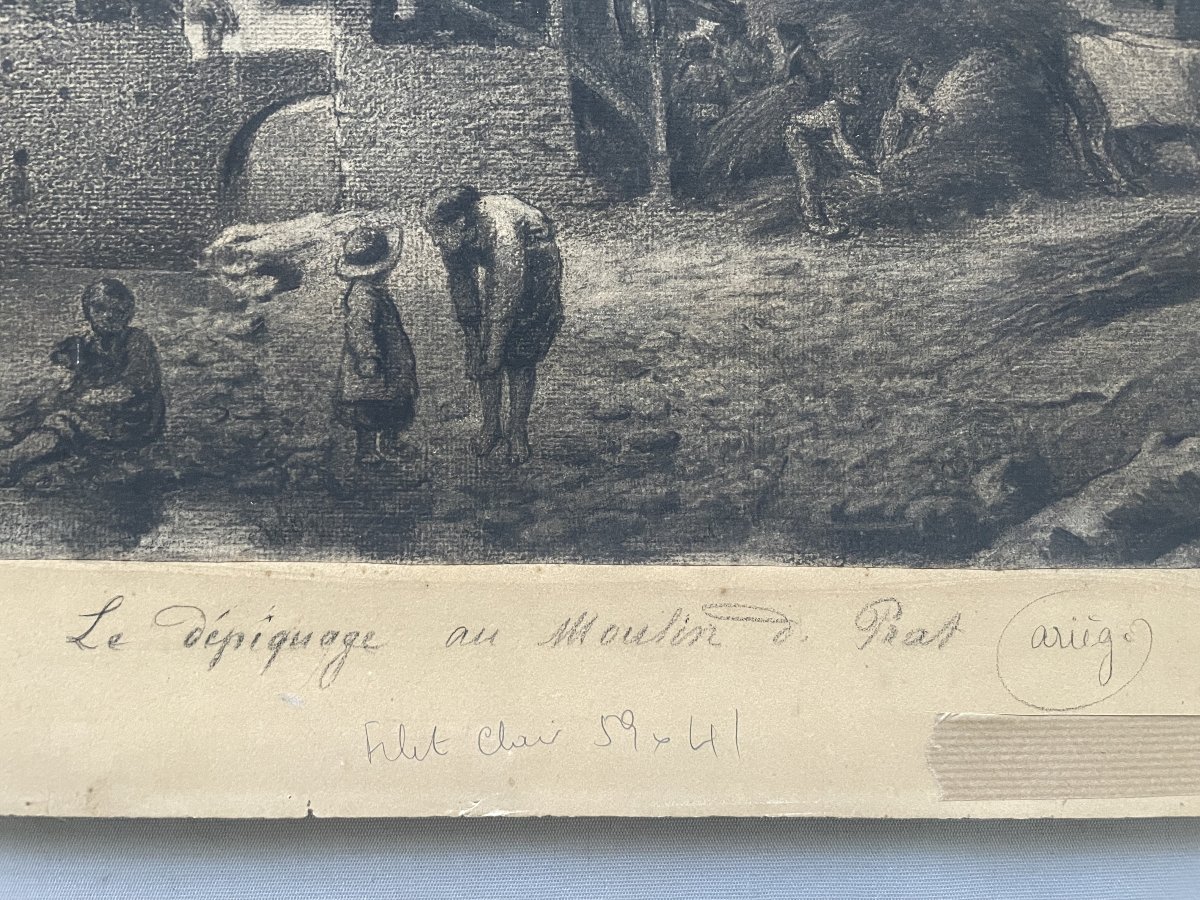 Le dépiquage au Moulin d. Prat (arièg.)
Filet Clair 59x41